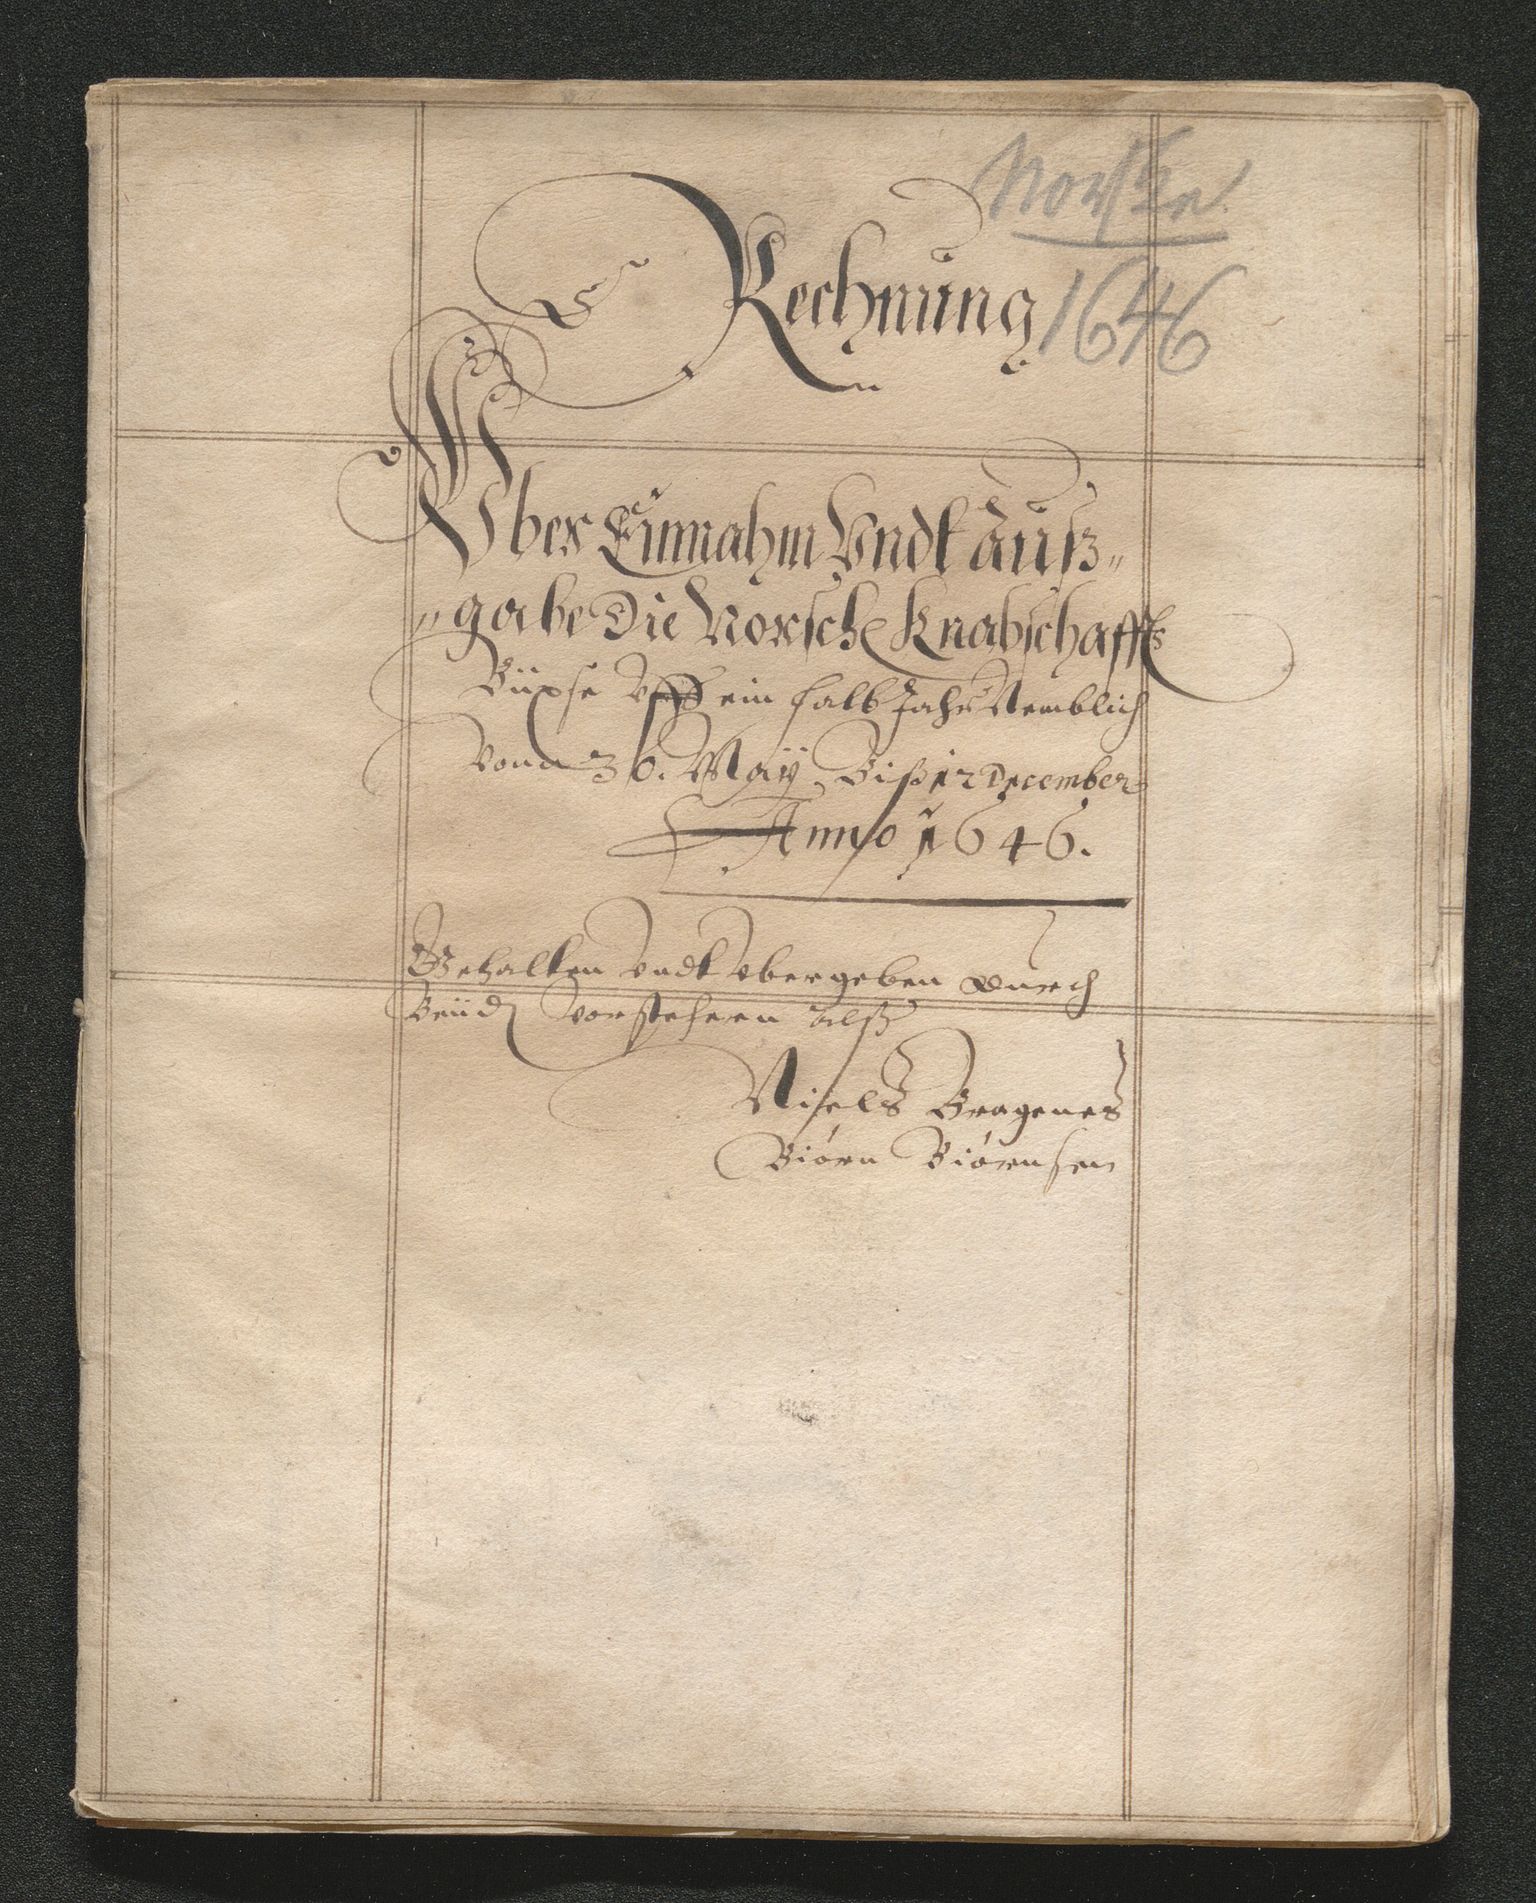 Norske
1646
Rechnung
Vber Einnahm Vndt auß„
„gabe Die Norsche Knabschaffts
Büxse Vff ein halb Jahr Nemblich
Vonn 30. May Biß 12 December
Anno 1646.
Gehalten Vndt Vbergeben Durch
Beüde Vorstehern alß
Niels Bragenes
Biørn Biørnsen